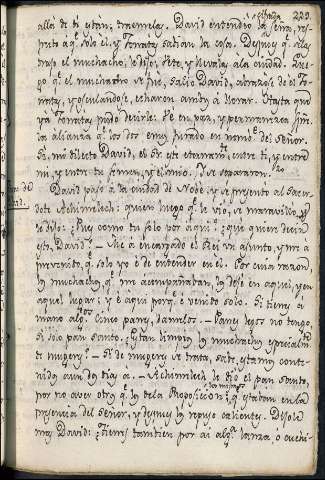 223.
alla de ti estan; traemelas. David entendio la seña, res-
pecto à q.e solo el, y Jonatas sabian la cosa. Despues q.e las
trajo el muchacho, le dijo: Vete, y llevalas a la ciudad. Lue-
go q.e el muchacho se fue, salio David, abrazose de el Jo-
natas, y osculandose echaron ambos à llorar. Hasta que
ya Jonatas pudo decirle: Ve en paz, y permanezca firme
la alianza q.e los dos emos jurado en nomb.e del Señor.
Si, mi dilecto David, el S.or este eternam.te entre ti, y entre
mi, y entre tu semen, y el mio. Y se separaron.
David paso à la ciudad de Nobe, y se presento al Sacer-
dote Achimelech: quien luego q.e le vio, se maravillo, y
le dijo: Pues como tu solo por aqui? ¿que quiere decir
esto, David? - Me à encargado el Rei un asunto, y me à
prevenido, q.e solo yo è de entender en el. Por cuia razon,
los muchachos, q.e me acompañaban, los dejè en aquel, y en
aquel lugar; y è aqui porq.e è venido solo. Si tienes à
mano algo, cinco panes, damelos. - Panes legos no tengo,
si solo pan santo. ¿Estan limpios los muchachos especialm.te
de mugeres? - Si de mugeres se trata, sabe, estamos conte-
nidos aun dos dias à. - Achimelech le dio el pan santo,
por no aver otro q.e los de la Proposicion; q.e estaban en la
presencia del Señor, y despues los repuso calientes. Dijole
mas David: ¿Tienes tambien por ai alg.a lanza o cuchi-